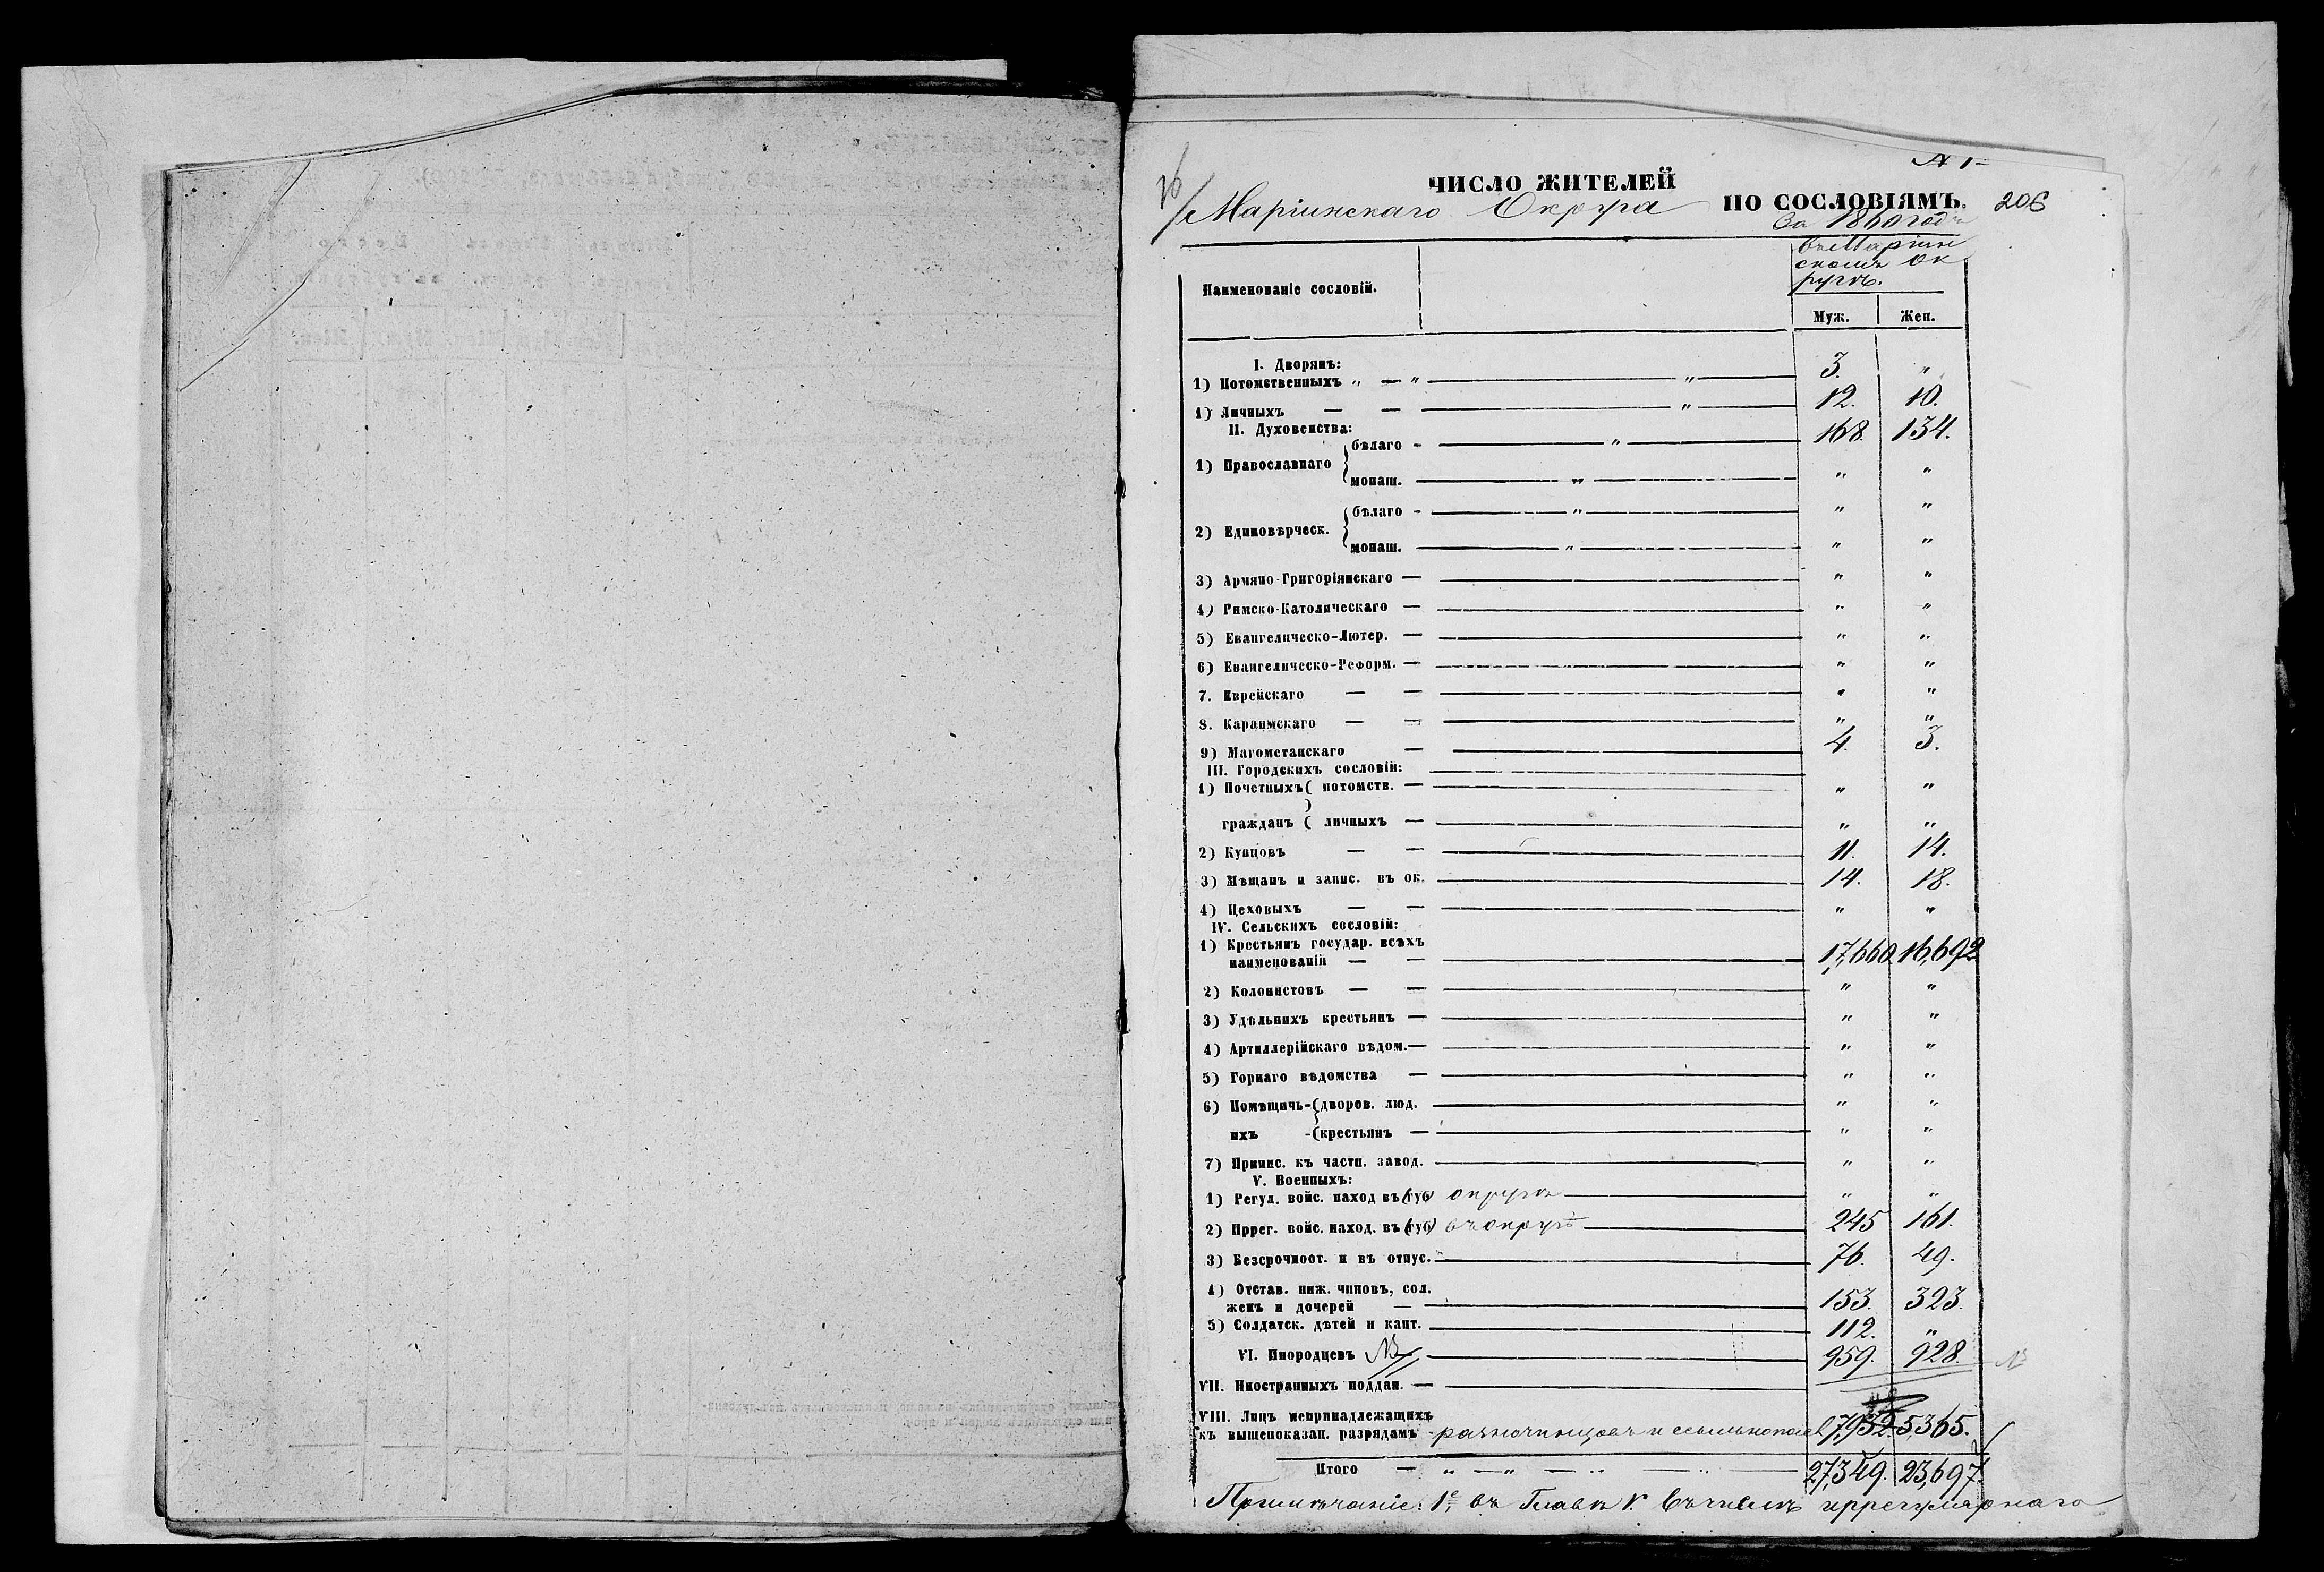 ЧИСЛО ЖИТЕЛЕЙ
Маріинскаго Округа ПО СОСЛОВІЯМЪ. 206
За 1860 годъ
Наименованіе сословій.
въ Маріин
скомъ Ок
ругѣ.
Муж. Жен.
I. Дворянъ:
1) Потомственныхъ „ — „ „ 3. „
1) Личныхъ — — „ 12. 10.
II. Духовенства:
1) Православнаго бѣлаго - „ 168. 134.
монаш. „ „ „
2) Единовѣрческ. бѣлаго - „ „ „
монаш. „ „ „
3) Армяно-Григоріянскаго — „ „
4) Римско-Католическаго — „ „
5) Евангелическо-Лютер. — „ „
6) Евангелическо-Реформ. — „ „
7. Еврейскаго — — „ „
8. Караимскаго — — „ „
9) Магометанскаго — 4. 3.
III. Городскихъ сословій:
1) Почетныхъ ( потомств. — „ „
гражданъ ( личныхъ — „ „
2) Купцовъ — — 11. 14.
3) Мѣщанъ и запис. въ ок. 14. 18.
4) Цеховыхъ — — „ „
IV. Сельскихъ сословій:
1) Крестьянъ государ. всѣхъ
наименованій — — 17,660 16,692
2) Колонистовъ — — „ „
3) Удѣльнихъ крестьянъ — „ „
4) Артиллерійскаго вѣдом. — „ „
5) Горнаго вѣдомства — „ „
6) Помѣщичь-(дворов. люд. „ „
ихъ -(крестьянъ — „ „
7) Припис. къ частн. завод. „ „
V. Военныхъ:
1) Регул. войс. наход въ (губ) округѣ „ „
2) Иррег. войс. наход. въ (губ) въ округѣ 245 161.
3) Безсрочноот. и въ отпус. 76. 49.
4) Отстав. ниж. чиновъ, сол.
женъ и дочерей — 153. 323.
5) Солдатск. дѣтей и кант. 112. „
VI. Инородцевъ NB 959. 928. NB
VII. Иностранныхъ поддан. —
VIII. Лицъ непринадлежащихъ
къ вышепоказан. разрядамъ - разночинцовъ и ссыльнопосел 7,932. 5,365.
Итого — „ — „ — „ — „ — 27,349. 23,697.
Примѣчаніе: 1е. въ Главѣ V. въ числѣ иррегулярнаго